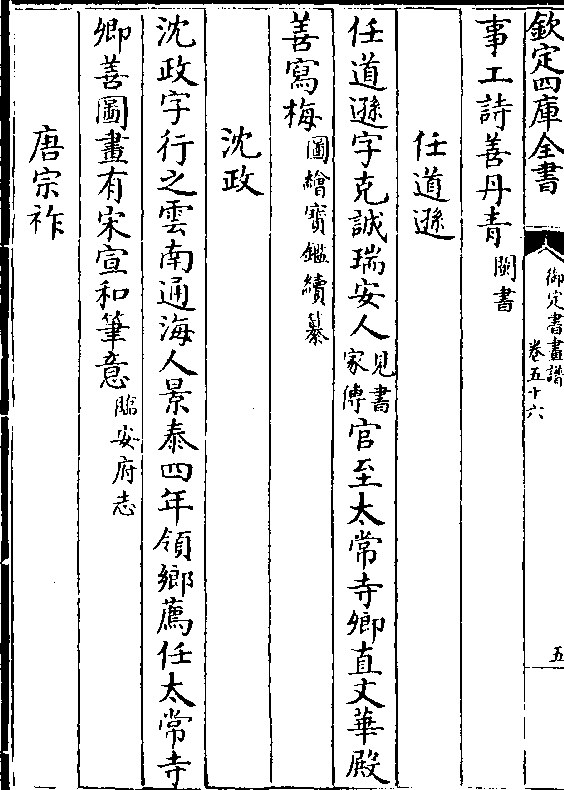 欽定四庫全書
御定書畫譜
卷五十六
五
事工詩善丹青閩書
任道遜
任道遜字克誠瑞安人見書家傳官至太常寺卿直文華殿
善寫梅圖繪寳鑑續纂
沈政
沈政字行之雲南通海人景泰四年領鄉薦任太常寺
卿善圖畫有宋宣和筆意臨安府志
唐宗祚